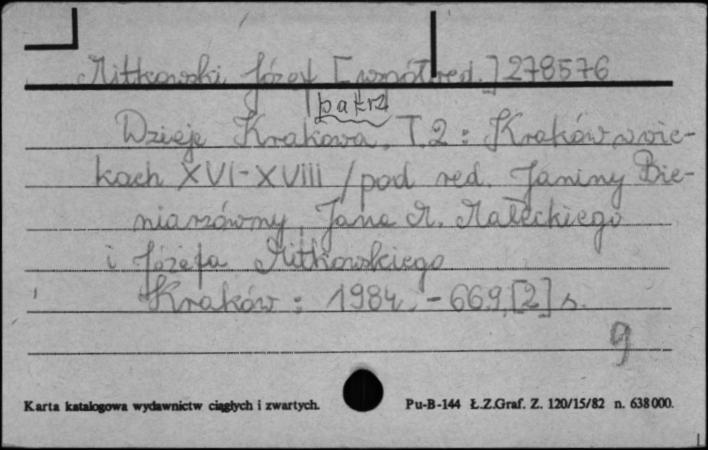 Mitkowski Józef [współred.] 278576
patrz
Dzieje Krakowa. T.2 : Kraków w wie-
kach XVI-XVIII / pod red. Janiny Bie-
niarzówny, Jana M. Małeckiego
i Józefa Mitkowskiego
Kraków : 1984. - 669, [2] s.
g
Karta katalogowa wydawnictw ciągłych i zwartych.
Pu-B-144 Ł.Z.Graf. Z. 120/15/82 n. 638000.